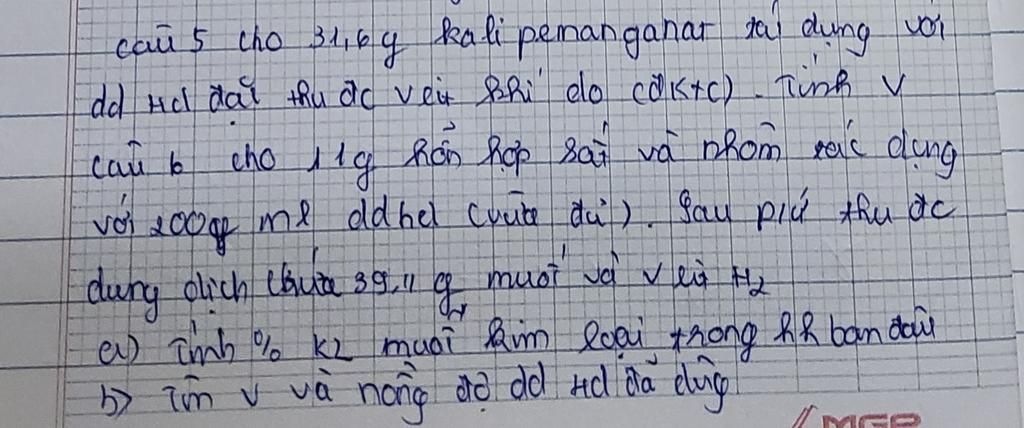 câu 5 cho 31,6g kali pemanganat tác dụng với
dd Hcl đặc thu đc V lít khí do (đktc). Tính V
câu 6 cho 11g hỗn hợp sắt và nhôm tác dụng
với 200 ml ddhcl (vừa đủ). Sau pứ thu đc
dung dịch chứa 39,11 g muối và V lít H2
a) Tính % kl mỗi kim loại trong hh ban đầu
b) Tìm V và nồng độ dd Hcl đã dùng